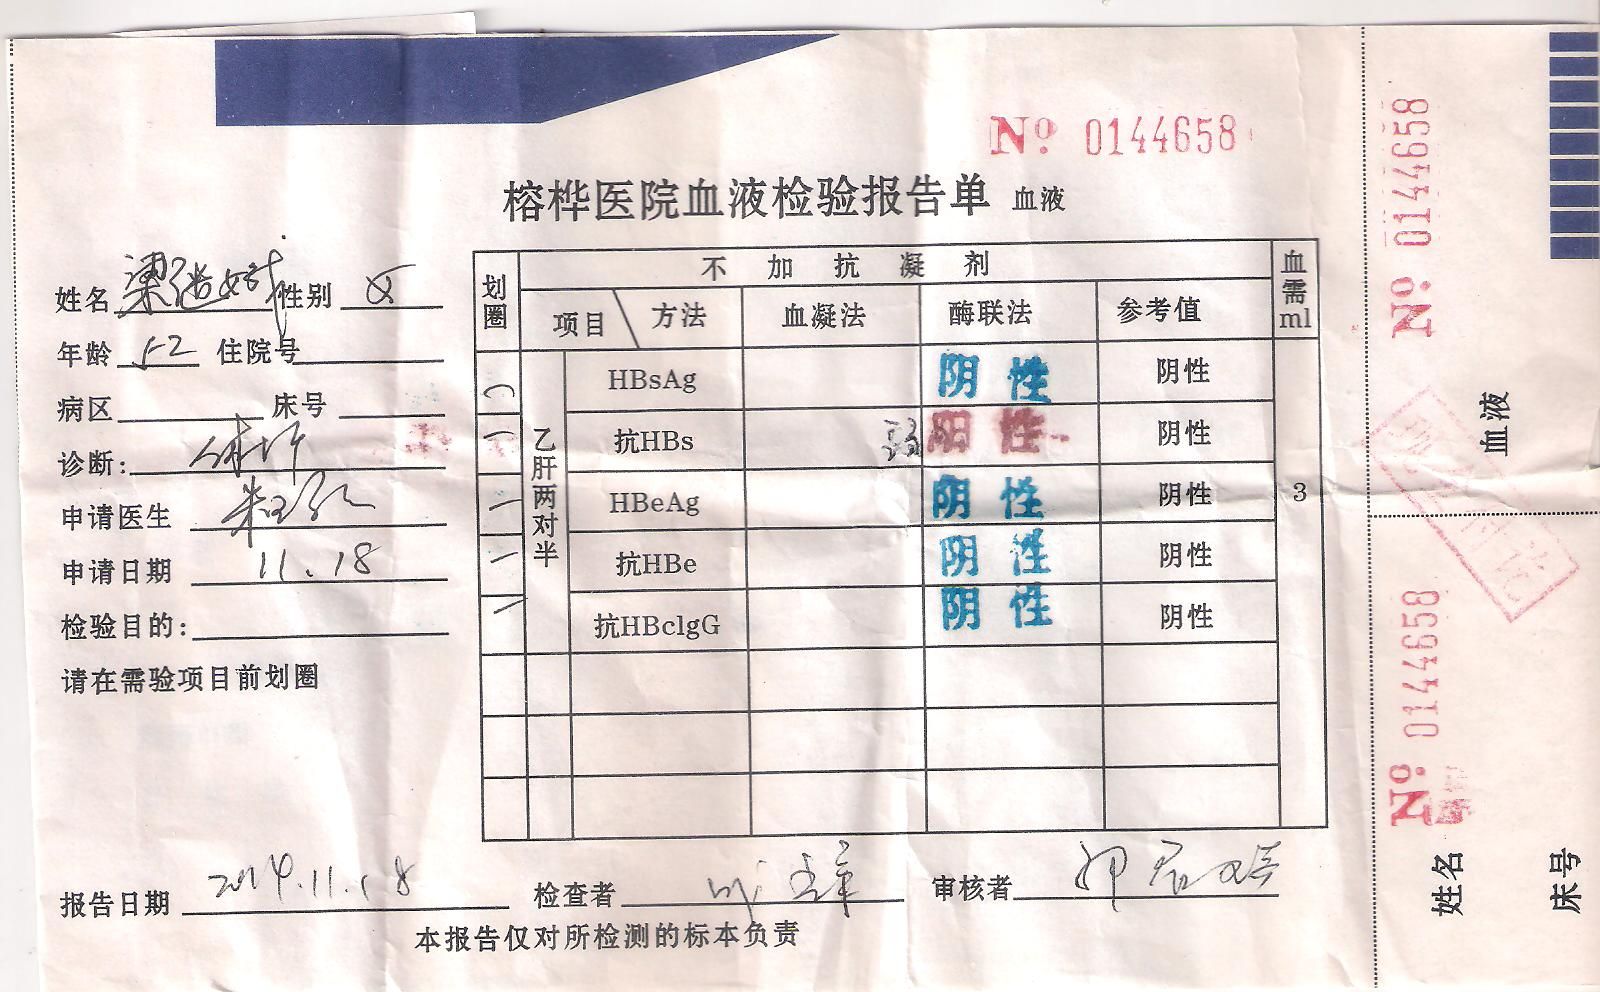 No 0144658
榕桦医院血液检验报告单 血液
姓名 梁 性别 女
年龄 52 住院号
病区 床号
诊断: 体检
申请医生
申请日期 11.18
检验目的:
请在需验项目前划圈
划圈 不加抗凝剂 血需ml
项目 方法 血凝法 酶联法 参考值
乙肝两对半
HBsAg 阴性 阴性
抗HBs 弱阳性 阴性
HBeAg 阴性 阴性 3
抗HBe 阴性 阴性
抗HBclgG 阴性 阴性
报告日期 2014.11.18 检查者 审核者
本报告仅对所检测的标本负责
No 0144658
血液
No 0144658
姓名
床号